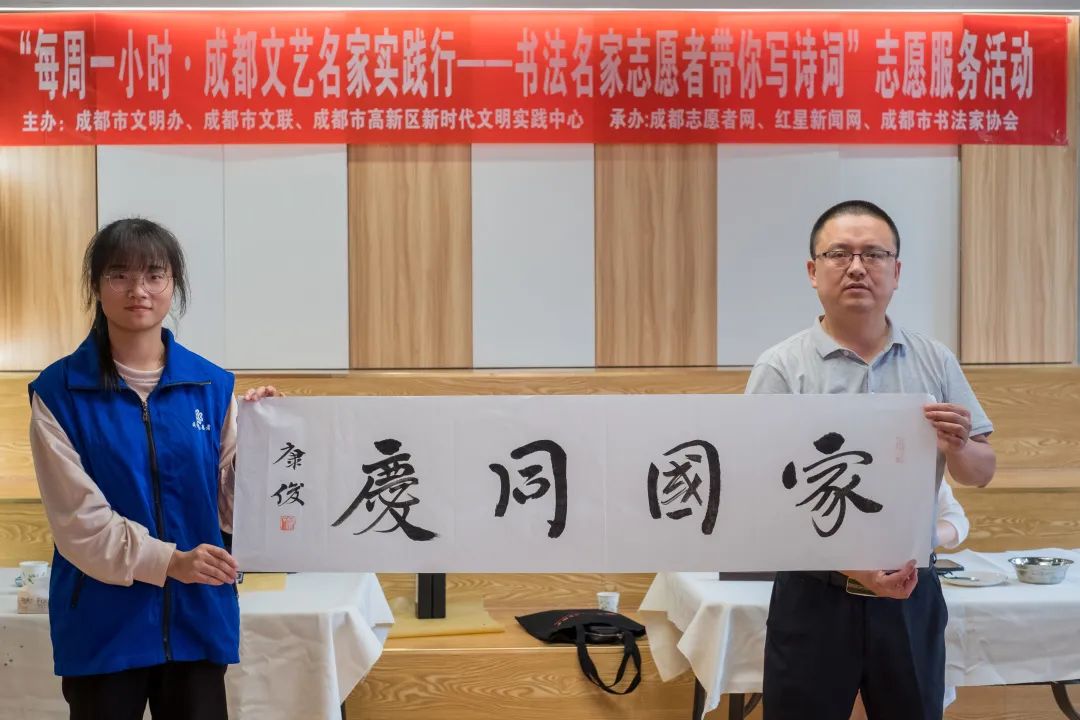 “每周一小时·成都文艺名家实践行——书法名家志愿者带你写诗词”志愿服务活动
主办：成都市文明办、成都市文联、成都市高新区新时代文明实践中心 承办:成都志愿者网、红星新闻网、成都市书法家协会
家國同慶
康俊